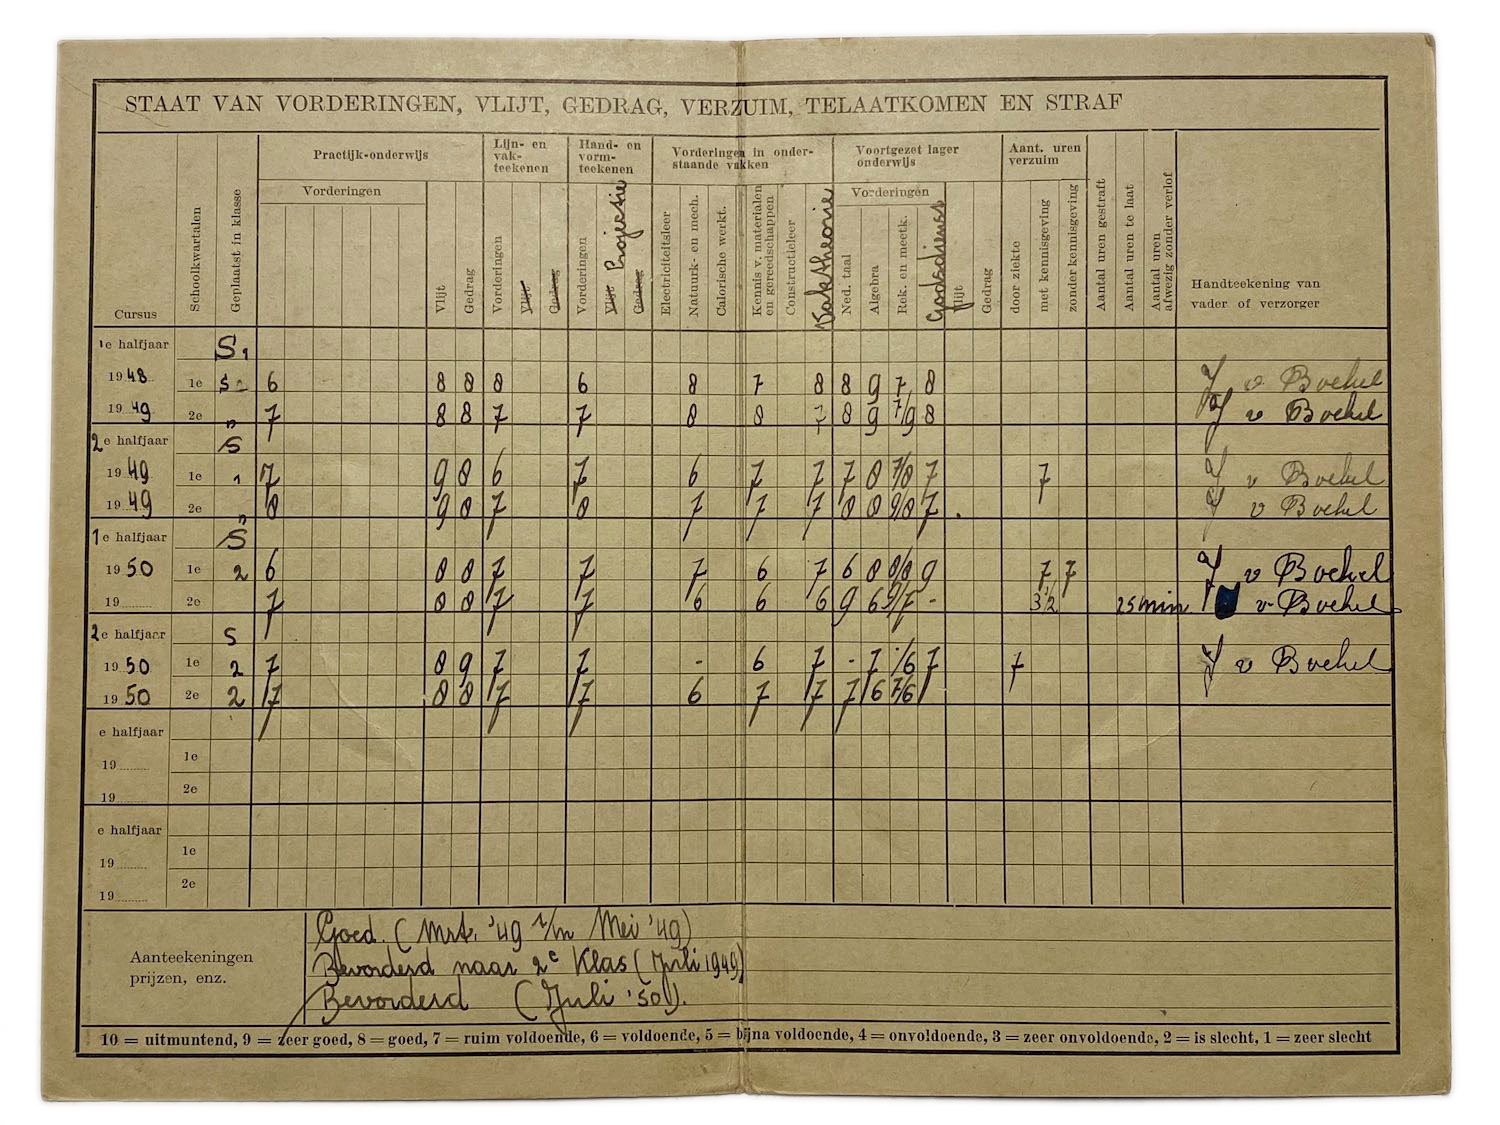 STAAT VAN VORDERINGEN, VLIJT, GEDRAG, VERZUIM, TELAATKOMEN EN STRAF
Cursus
Schoolkwartalen
Geplaatst in klasse
Practijk-onderwijs
Vorderingen
Vlijt
Gedrag
Lijn- en
vak-
teekenen
Vorderingen
Vlijt
Gedrag
Hand- en
vorm-
teekenen
Vorderingen
Vlijt Projectie
Gedrag
Vorderingen in onder-
staande vakken
Electriciteitsleer
Natuurk- en mech.
Calorische werkt.
Kennis v. materialen
en gereedschappen
Constructieleer
Vaktheorie
Voortgezet lager
onderwijs
Vorderingen
Ned. taal
Algebra
Rek. en meetk.
Godsdienst
Vlijt
Gedrag
Aant. uren
verzuim
door ziekte
met kennisgeving
zonder kennisgeving
Aantal uren gestraft
Aantal uren te laat
Aantal uren
afwezig zonder verlof
Handteekening van
vader of verzorger
1e halfjaar S1
1948 1e S2 6 8 8 8 6 8 7 8 8 9 7 8 J v Boekel
1949 2e " 7 8 8 7 7 8 8 7 8 9 7/9 8 J v Boekel
2e halfjaar S
1949 1e 1 7 9 8 6 7 6 7 7 7 8 7/8 7 7 J v Boekel
1949 2e " 8 9 8 7 8 7 7 7 8 8 9/8 7. J v Boekel
1e halfjaar S
1950 1e 2 6 8 8 7 7 7 6 7 6 8 8/8 9 7 7 J v Boekel
19 2e 7 8 8 7 7 6 6 6 9 6 9/7 - 3 1/2 25 min J v Boekel
2e halfjaar S
1950 1e 2 7 8 9 7 7 - 6 7 - 7 -/6 7 7 J v Boekel
1950 2e 2 7 8 8 7 7 6 7 7 7 6 7/6 /
e halfjaar
19 1e
19 2e
e halfjaar
19 1e
19 2e
Aanteekeningen
prijzen, enz.
Goed. (Mrt. '49 t/m Mei '49)
Bevorderd naar 2e Klas (Juli 1949)
Bevorderd (Juli '50).
10 = uitmuntend, 9 = zeer goed, 8 = goed, 7 = ruim voldoende, 6 = voldoende, 5 = bijna voldoende, 4 = onvoldoende, 3 = zeer onvoldoende, 2 = is slecht, 1 = zeer slecht